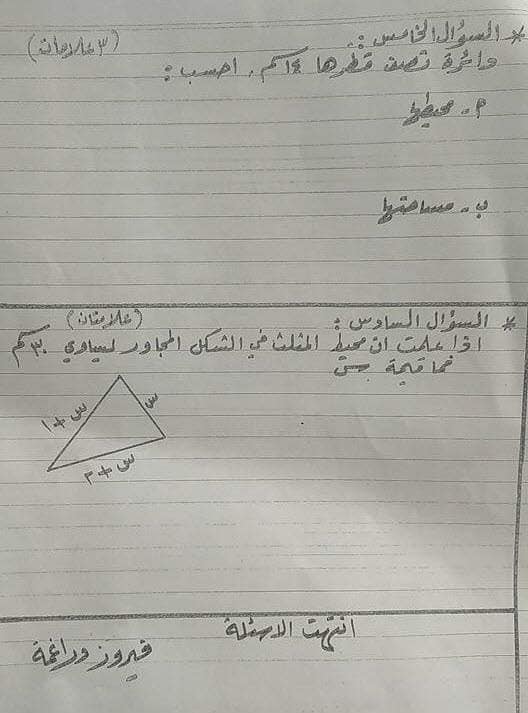 * السؤال الخامس : (٣ علامات)
دائرة نصف قطرها ١٤كم . احسب :
٢ - محيطها
ب - مساحتها
* السؤال السادس : (علامتان)
اذا علمت ان محيط المثلث في الشكل المجاور يساوي ٣٠كم
فما قيمة س
س + ١
س
س + ٢
انتهت الاسئلة
فيروز وراغمة